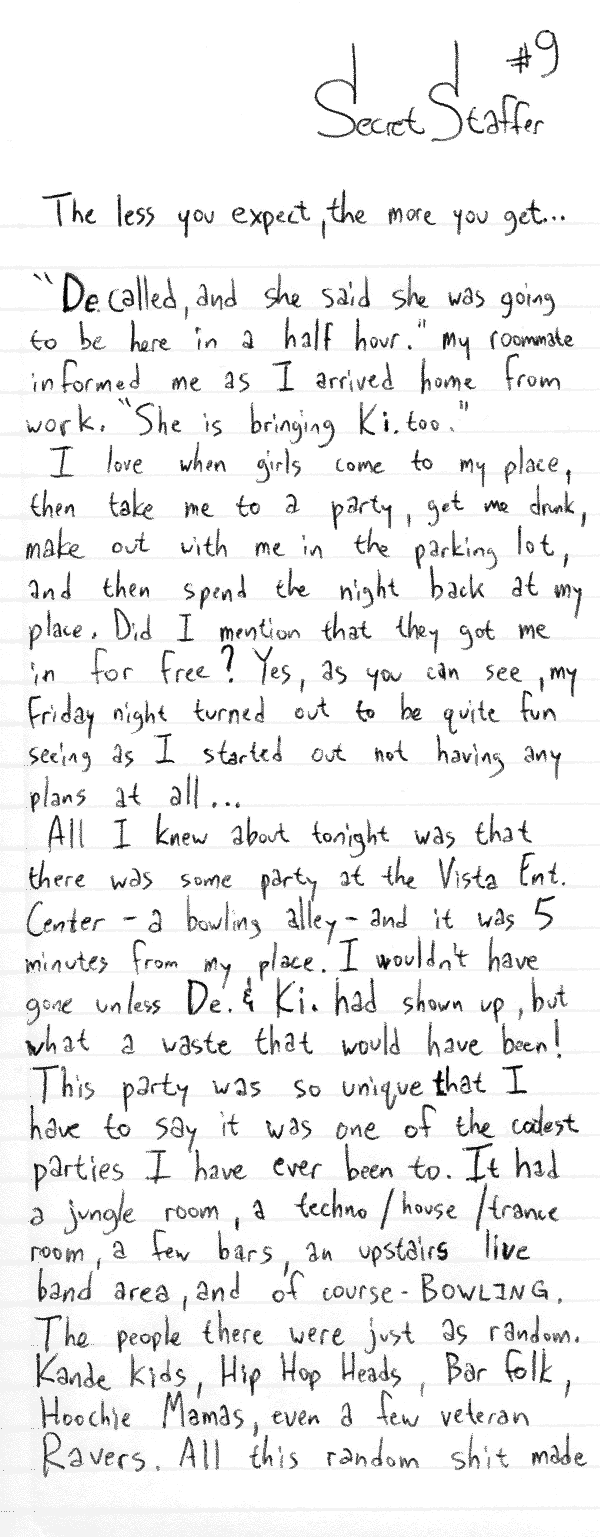 #9
Secret Staffer
The less you expect, the more you get...
"De. called, and she said she was going
to be here in a half hour." my roommate
informed me as I arrived home from
work. "She is bringing Ki. too."
I love when girls come to my place,
then take me to a party, get me drunk,
make out with me in the parking lot,
and then spend the night back at my
place. Did I mention that they got me
in for free? Yes, as you can see, my
Friday night turned out to be quite fun
seeing as I started out not having any
plans at all...
All I knew about tonight was that
there was some party at the Vista Ent.
Center - a bowling alley - and it was 5
minutes from my place. I wouldn't have
gone unless De. & Ki. had shown up, but
what a waste that would have been!
This party was so unique that I
have to say it was one of the coolest
parties I have ever been to. It had
a jungle room, a techno/house/trance
room, a few bars, an upstairs live
band area, and of course - BOWLING.
The people there were just as random.
Kande kids, Hip Hop Heads, Bar folk,
Hoochie Mamas, even a few veteran
Ravers. All this random shit made